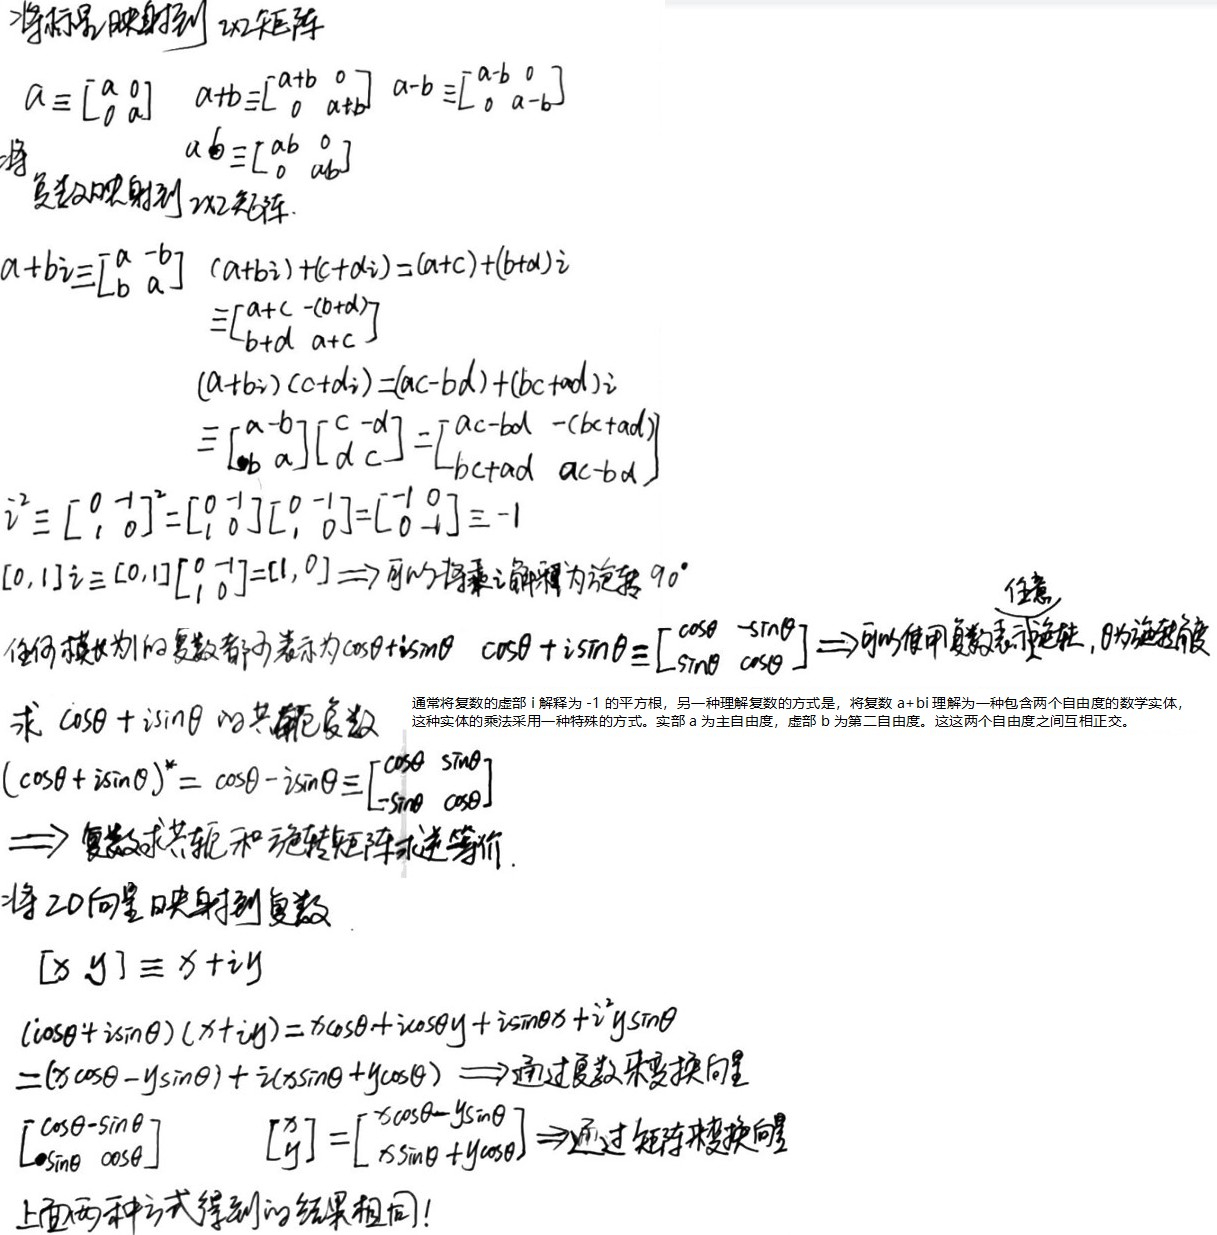 将标量映射到 2x2矩阵
a ≡ [a 0; 0 a]  a+b ≡ [a+b 0; 0 a+b]  a-b ≡ [a-b 0; 0 a-b]
ab ≡ [ab 0; 0 ab]
将复数映射到 2x2矩阵.
a+bi ≡ [a -b; b a]  (a+bi)+(c+di)=(a+c)+(b+d)i
≡ [a+c -(b+d); b+d a+c]
(a+bi)(c+di)=(ac-bd)+(bc+ad)i
≡ [a -b; b a][c -d; d c] = [ac-bd -(bc+ad); bc+ad ac-bd]
i² ≡ [0 -1; 1 0]² = [0 -1; 1 0][0 -1; 1 0] = [-1 0; 0 -1] ≡ -1
[0,1]i ≡ [0,1][0 -1; 1 0] = [1,0] ⟹ 可以将乘i解释为旋转90°
任何模长为1的复数都可表示为cosθ+isinθ  cosθ+isinθ ≡ [cosθ -sinθ; sinθ cosθ] ⟹ 可以使用复数表示任意旋转,θ为旋转角度
求 cosθ+isinθ 的共轭复数
通常将复数的虚部 i 解释为 -1 的平方根，另一种理解复数的方式是，将复数 a+bi 理解为一种包含两个自由度的数学实体，
这种实体的乘法采用一种特殊的方式。实部 a 为主自由度，虚部 b 为第二自由度。这这两个自由度之间互相正交。
(cosθ+isinθ)* = cosθ-isinθ ≡ [cosθ sinθ; -sinθ cosθ]
⟹ 复数求共轭和旋转矩阵求逆等价.
将2D向量映射到复数
[x y] ≡ x+iy
(cosθ+isinθ)(x+iy)=xcosθ+icosθy+isinθx+i²ysinθ
=(xcosθ-ysinθ)+i(xsinθ+ycosθ) ⟹ 通过复数来变换向量
[cosθ -sinθ; sinθ cosθ]  [x; y] = [xcosθ-ysinθ; xsinθ+ycosθ] ⟹ 通过矩阵来变换向量
上面两种方式得到的结果相同!